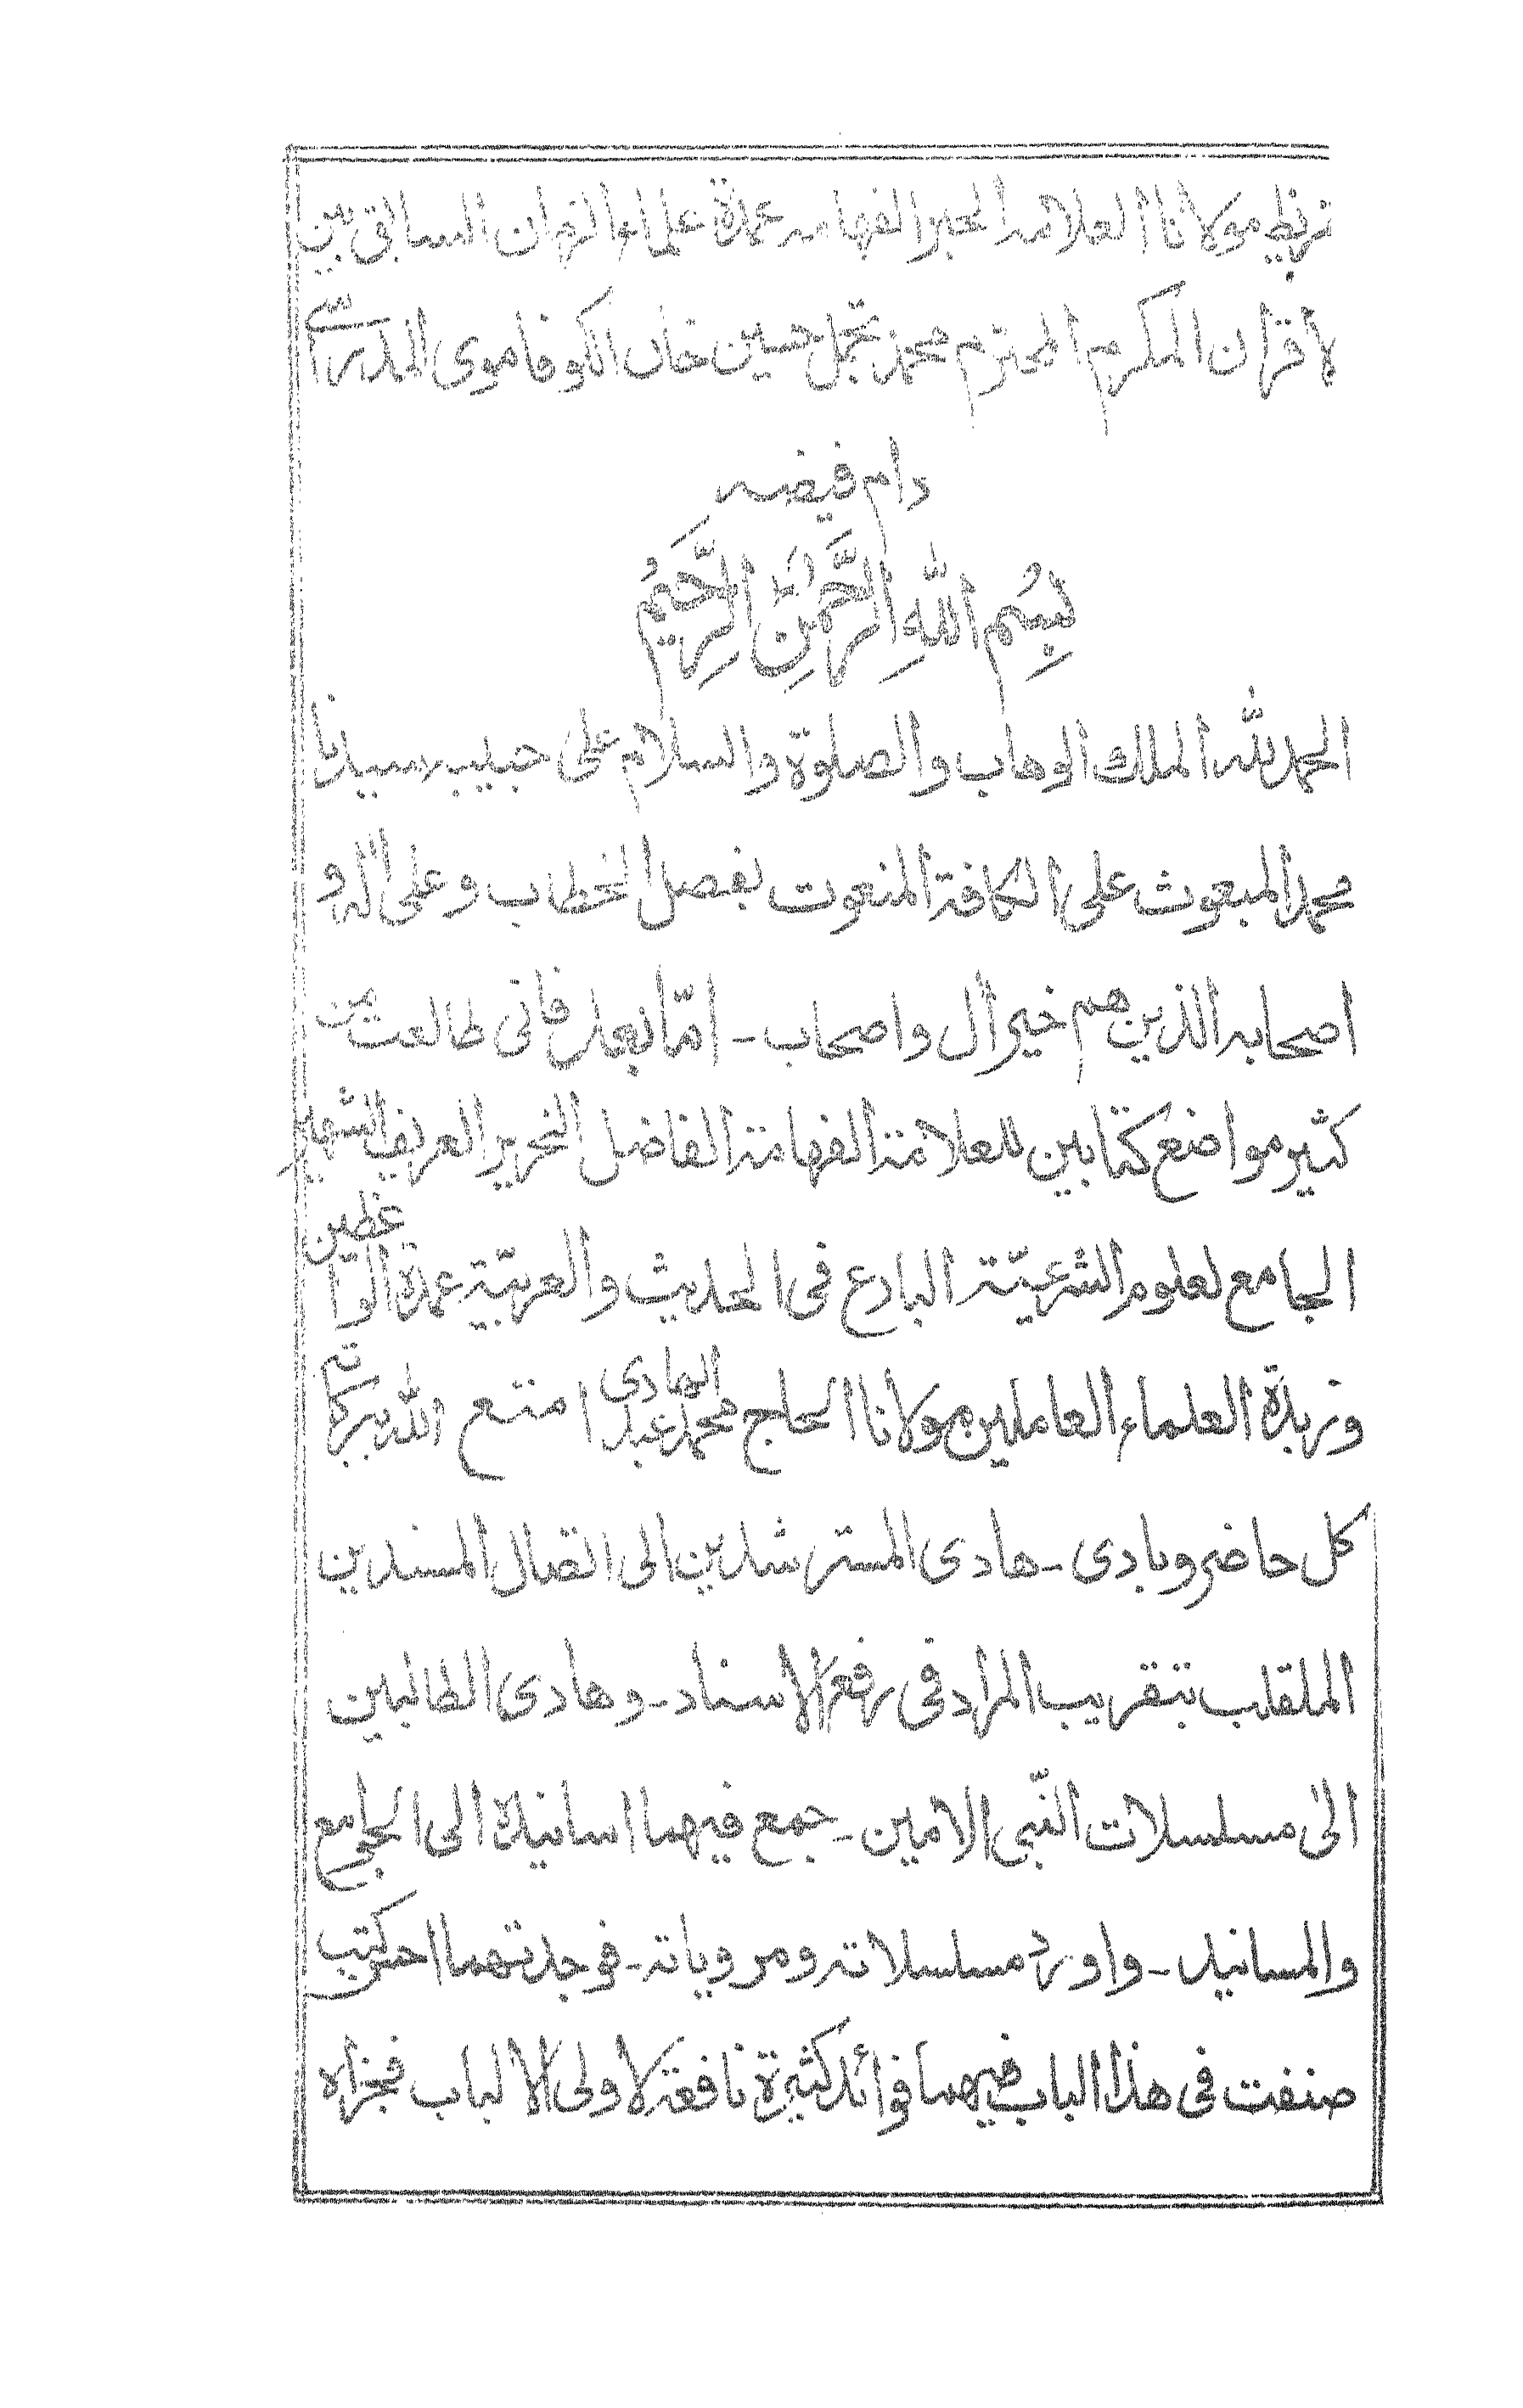 تقريظ مولانا العلامة الحبر الفهامه عمدة علماء الزمان السابق بين
لأقران المكرم المحترم محمد تجمل حسين خان الكوفاموى المدراسي
دام فيضه
بِسْمِ اللهِ الرَّحْمٰنِ الرَّحِيْمِ
الحمد لله الملك الوهاب والصلوة والسلام على حبيبه سيدنا
محمد المبعوث على الكافة المنعوت بفصل الخطاب وعلى اٰله و
اصحابه الذين هم خير اٰل واصحاب - امّا بعد فانى طالعت من
كثير مواضع كتابين للعلامة الفهامة الفاضل النحرير العريف الشهير
الجامع لعلوم الشرعيّة البارع فى الحديث والعربيّة عمدة الواعظين
وزبدة العلماء العاملين مولانا الحاج محمد عبد الهادى امتع الله ببركاته
كل حاضر وبادى - هادى المسترشدين الى اتصال المسندين
الملقب بتقريب المراد فى رفع الاسناد - وهادى الطالبين
الىٰ مسلسلات النّبى الامين - جمع فيهما اسانيده الى الجوامع
والمسانيد - واورد مسلسلاته ومروياته - فوجدتهما احسن كتب
صنفت فى هذا الباب فيهما فوائد كثيرة نافعة لاولى الالباب فجزاه